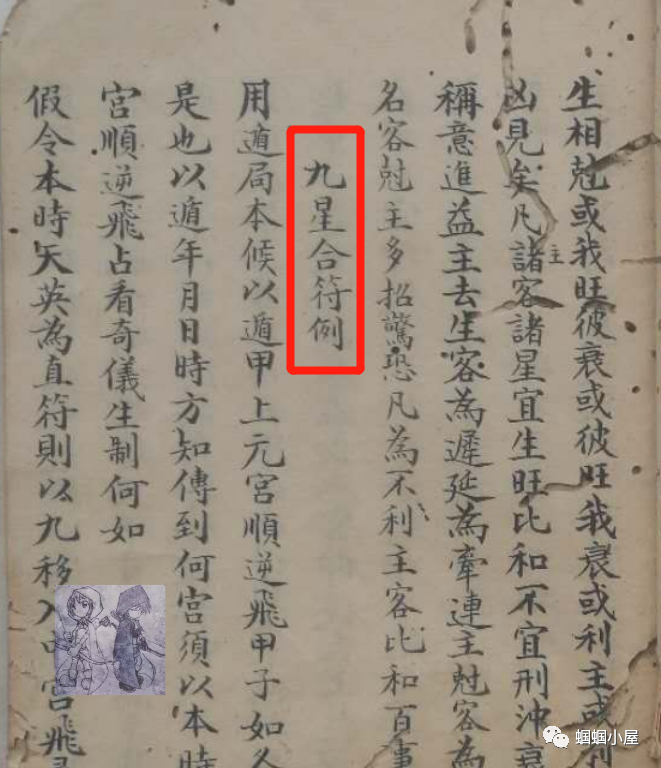 生相尅或我旺彼衰或彼旺我衰或利主或利
凶見矣凡諸客諸星宜生旺比和不宜刑沖衰
主
稱意進益主去生客為遲延為牽連主尅客為
名客尅主多招驚恐凡為不利主客比和百事
九星合符例
用遁局本候以遁甲上元宮順逆飛甲子如今
是也以遁年月日時方知傳到何宮須以本時
宮順逆飛占看奇儀生制何如
假令本時天英為直符則以九移入中宮飛
蝈蝈小屋